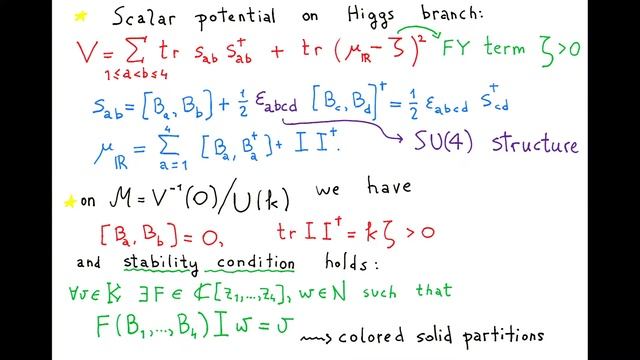 ★ Scalar potential on Higgs branch:
V = ∑_{1≤a<b≤4} tr s_{ab} s_{ab}^† + tr (μ_{IR} − ζ)² FY term ζ>0
s_{ab} = [B_a, B_b] + ½ ε_{abcd} [B_c, B_d]^† = ½ ε_{abcd} s_{cd}^†
μ_{IR} = ∑_{a=1}^{4} [B_a, B_a^†] + I I^†. SU(4) structure
★ on M = V^{-1}(0)/U(k) we have
[B_a, B_b] = 0, tr I I^† = kζ > 0
and stability condition holds:
∀v∈K ∃F∈ ℂ[z_1,...,z_4], w∈N such that
F(B_1,...,B_4) I w = v ⟿ colored solid partitions